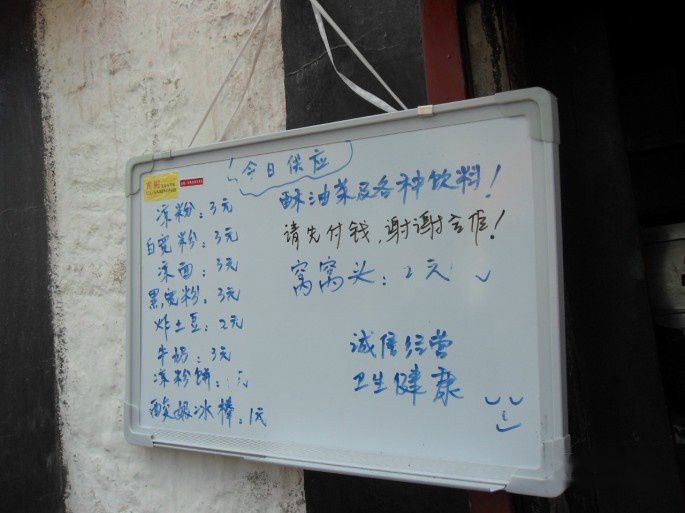 今日供应
凉粉:3元
白宽粉:3元
凉面:3元
黑宽粉:3元
炸土豆:2元
牛奶:3元
凉粉饼:元
酸奶冰棒:1元
酥油茶及各种饮料!
请先付钱,谢谢合作!
窝窝头:2元
诚信经营
卫生健康